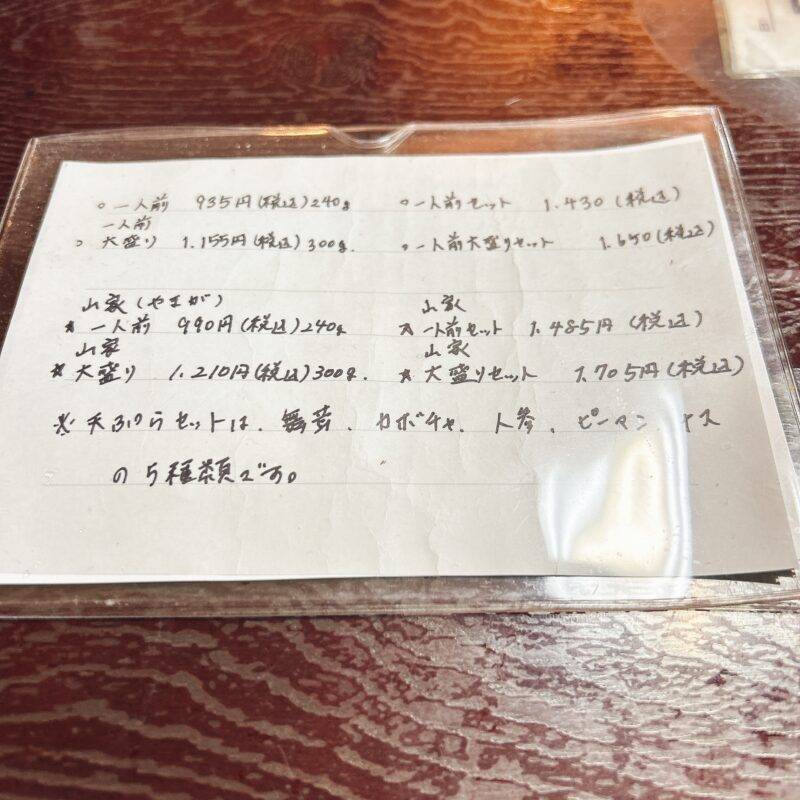 ○一人前 935円(税込)240g ○一人前セット 1.430(税込)
一人前
○大盛り 1.155円(税込)300g. ○一人前大盛りセット 1.650(税込)
山家(やまが) 山家
★一人前 990円(税込)240g ★一人前セット 1.485円(税込)
山家 山家
★大盛り 1.210円(税込)300g. ★大盛りセット 1.705円(税込)
※天ぷらセットは、舞茸、カボチャ、人参、ピーマン、ナス
の5種類です。